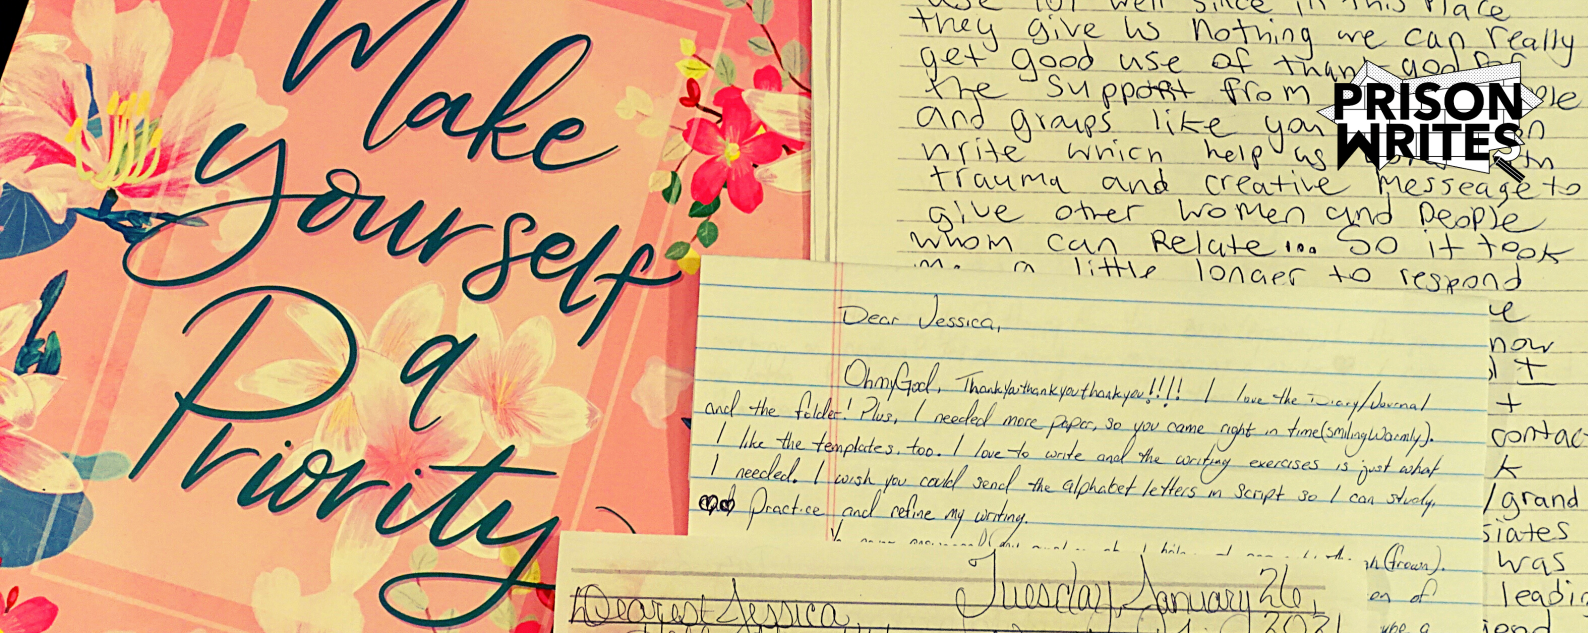 Make
yourself
a
Priority
use for well since in this place
they give us nothing we can really
get good use of
the support from
and groups like you
write which help us
trauma and creative messeage to
give other women and People
whom can Relate... So it took
a little longer to respond
now
+
contac
k
/grand
siates
was
leadin
PRISON
WRITES
Dear Jessica,
OhmyGod, Thankyouthankyouthankyou!!!! I love the Diary/Journal
and the folder! Plus, I needed more paper, so you came right in time(smilingwarmly).
I like the templates, too. I love to write and the writing exercises is just what
I needed. I wish you could send the alphabet letters in script so I can study,
and Practice and refine my writing.
(frown).
Dearest Jessica,
Tuesday, January 26,
2021